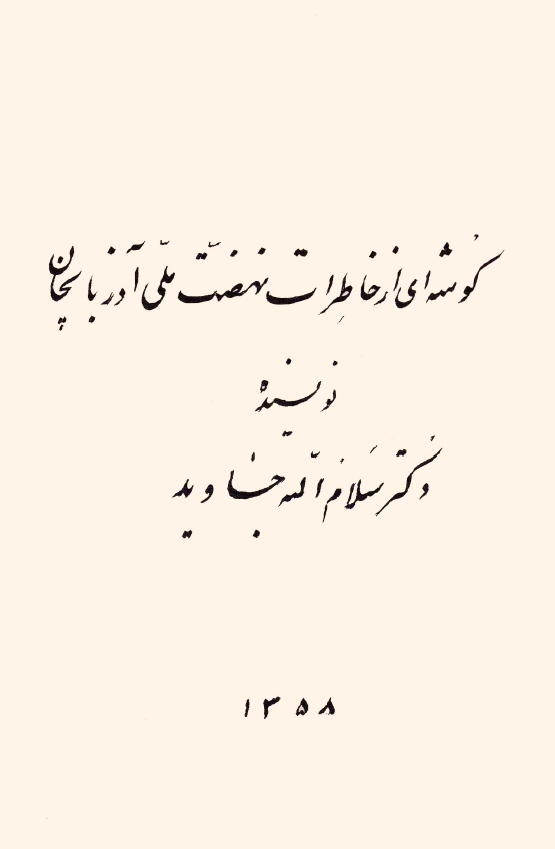 گوشه‌ای از خاطرات نهضت ملّی آذربایجان
نویسنده
دکتر سَلام اللّه جاوید
۱۳۵۸